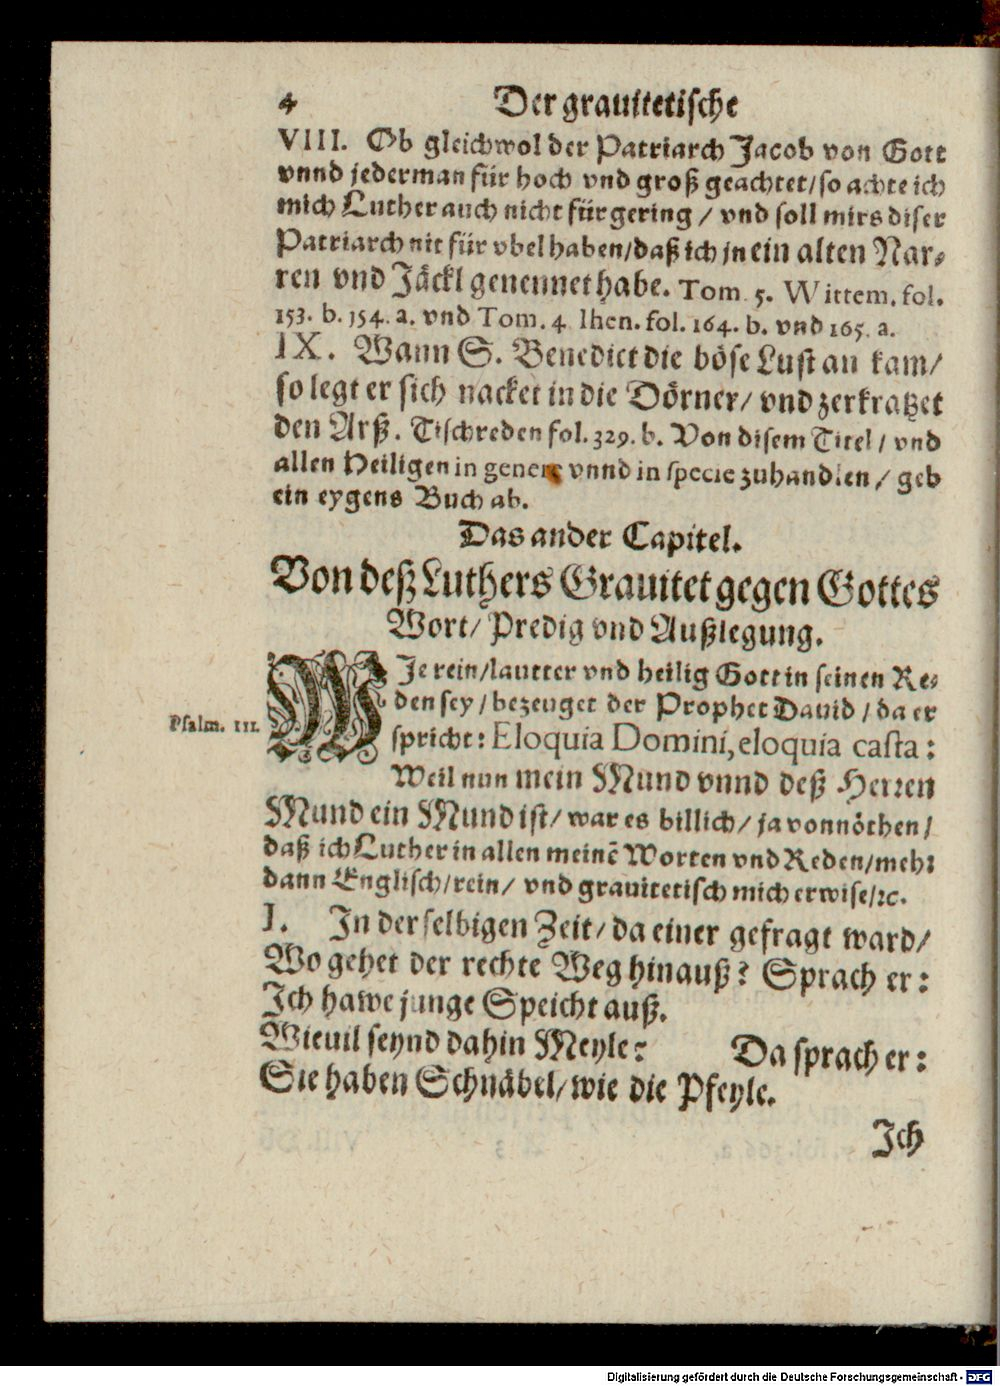 4 Der grauitetische
VIII. Ob gleichwol der Patriarch Jacob von Gott
vnnd jederman für hoch vnd groß geachtet/so achte ich
mich Luther auch nicht für gering / vnd soll mirs diser
Patriarch nit für vbel haben/daß ich jn ein alten Nar⸗
ren vnd Jäckl genennet habe. Tom. 5. Wittem. fol.
153. b. 154. a. vnd Tom. 4. Ihen. fol. 164. b. vnd 165. a.
IX. Wann S. Benedict die böse Lust an kam/
so legt er sich nacket in die Dörner/ vnd zerkratzet
den Arß. Tischreden fol. 329. b. Von disem Titel / vnd
allen Heiligen in genere vnnd in specie zuhandlen / geb
ein eygens Buch ab.
Das ander Capitel.
Von deß Luthers Grauitet gegen Gottes
Wort/ Predig vnd Außlegung.
WJe rein/lautter vnd heilig Gott in seinen Re⸗
den sey / bezeuget der Prophet Dauid / da er
Psalm. 111.
spricht: Eloquia Domini, eloquia casta:
Weil nun mein Mund vnnd deß Herren
Mund ein Mund ist/ war es billich/ ja vonnöthen/
daß ich Luther in allen meinẽ Worten vnd Reden/mehr
dann Englisch/rein/ vnd grauitetisch mich erwise/ꝛc.
I. In derselbigen Zeit/ da einer gefragt ward/
Wo gehet der rechte Weg hinauß? Sprach er:
Ich hawe junge Speicht auß.
Wieuil seynd dahin Meyle? Da sprach er:
Sie haben Schnäbel/ wie die Pfeyle.
Ich
Digitalisierung gefördert durch die Deutsche Forschungsgemeinschaft - DFG